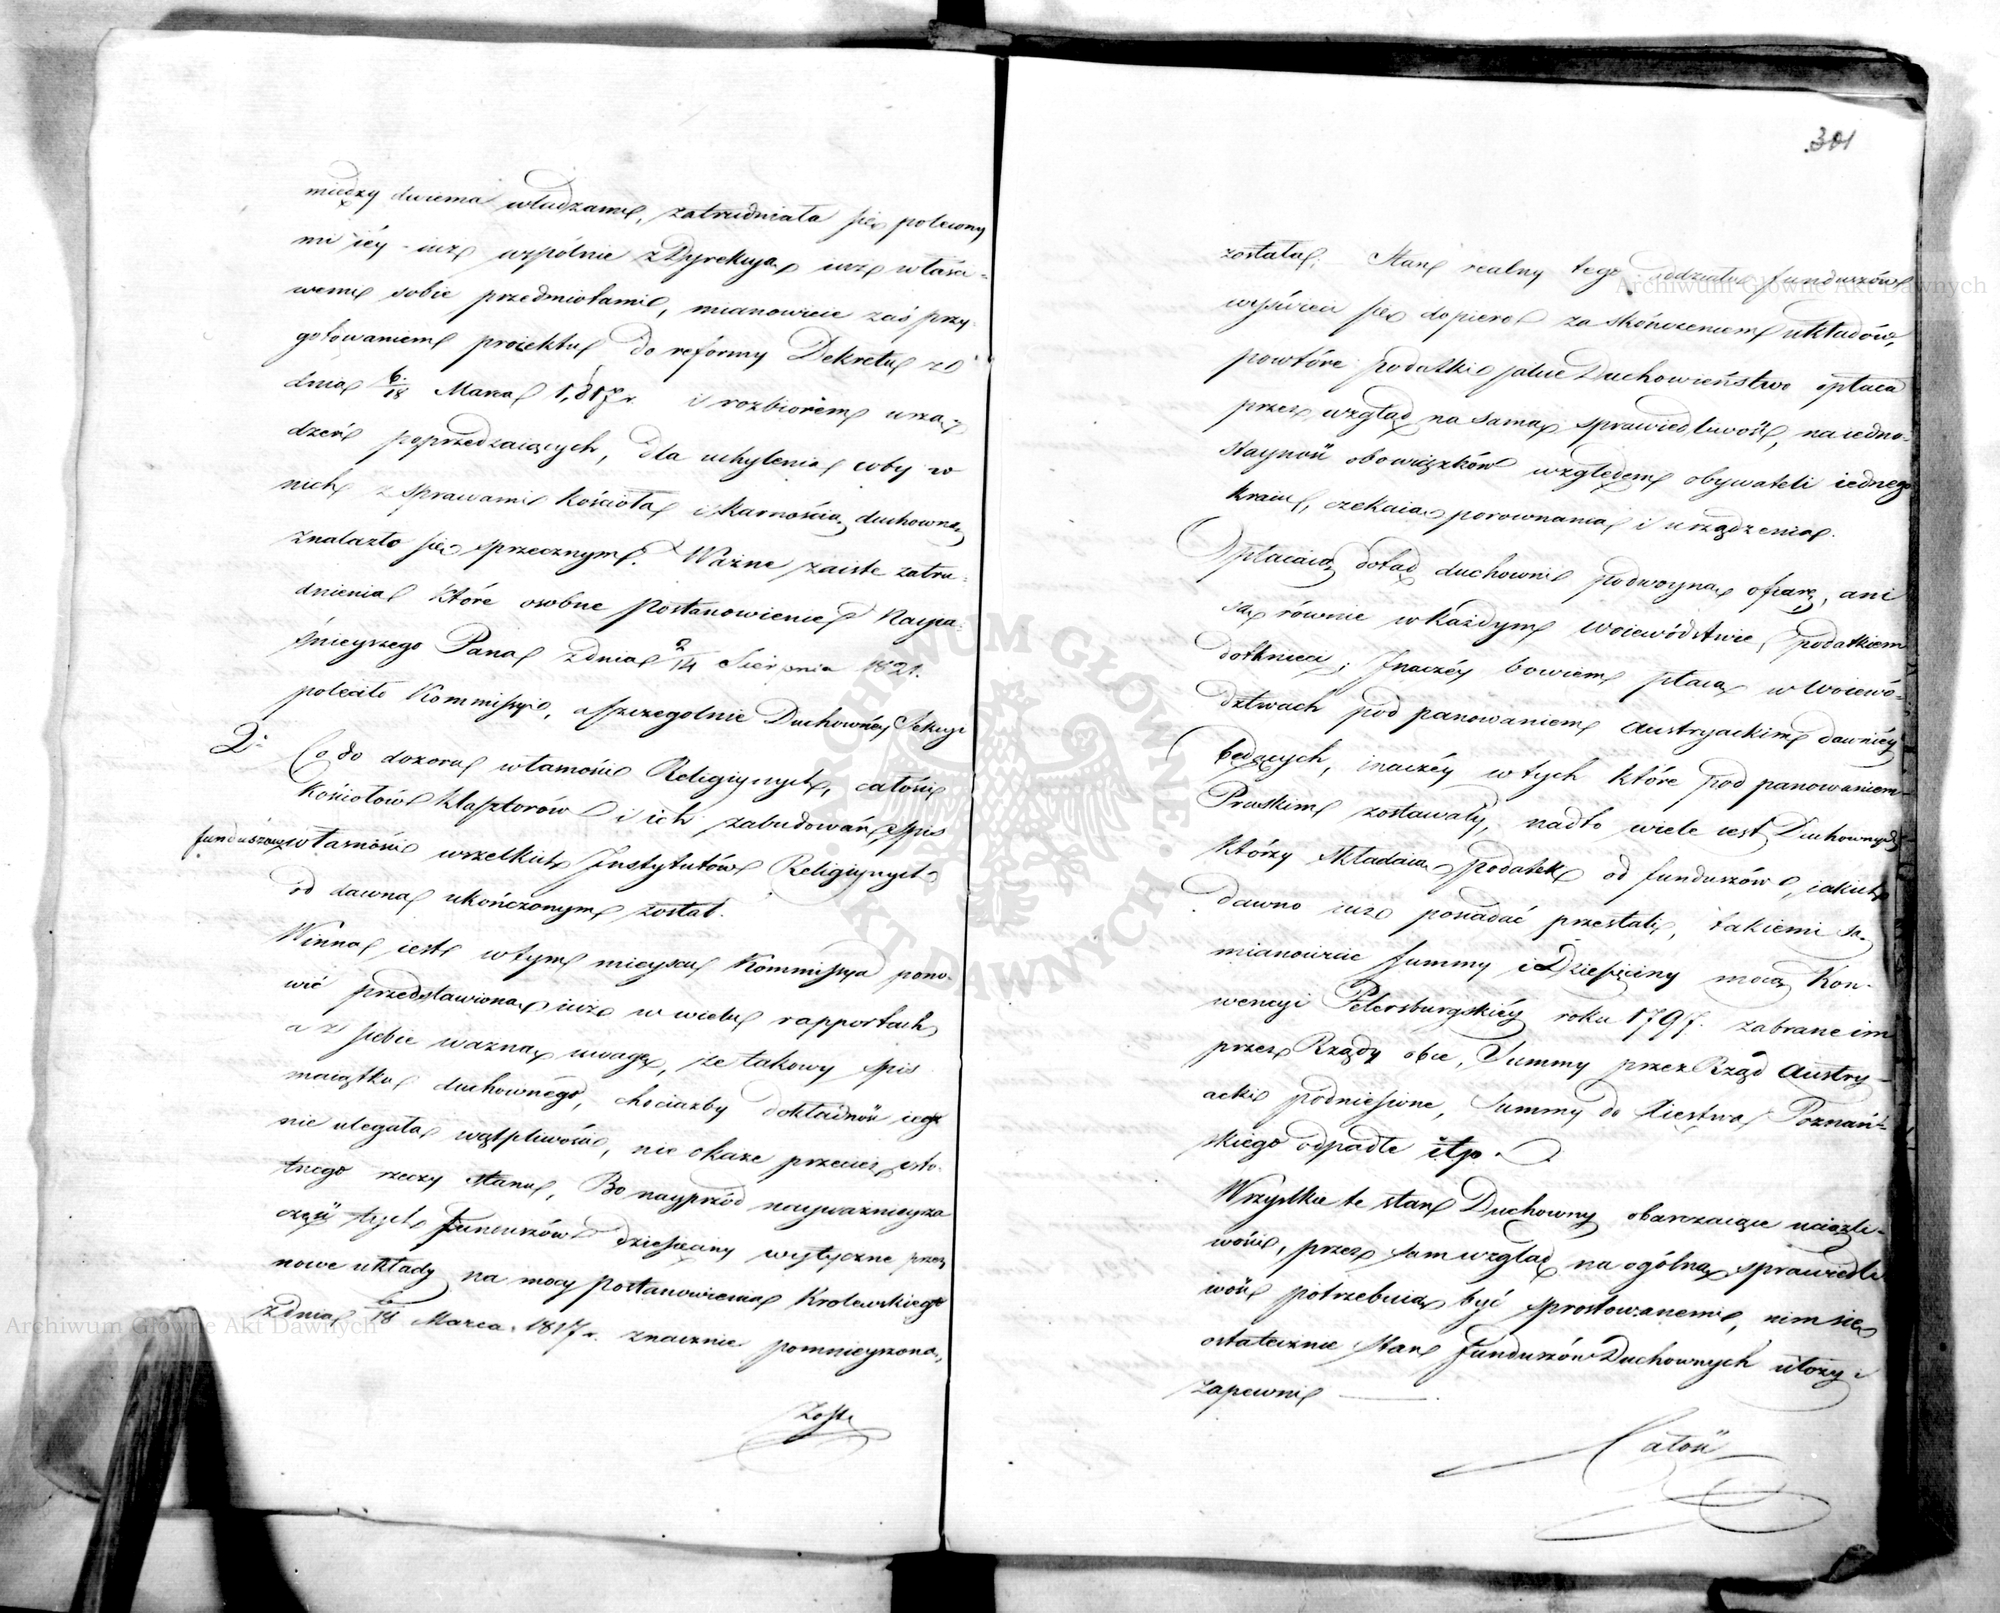 między dwiema władzami, zatrudniała się polecony
mi iéy iuż wspólnie z Dyrekcyą iuż właści=
wemi sobie przedmiotami, mianowicie zaś przy=
gotowaniem proiektu do reformy Dekretu z d
dnia 6/18 Marca 1,817 r. i rozbiorem urzą=
dzeń poprzedzaiących, dla uchylenia coby w
nich z sprawami Kościoła i karnością duchowną
znalazło się sprzecznym. Ważne zaiste zatru=
dnienia które osobne Postanowienie Nayia=
śnieyszego Pana z dnia 2/14 Sierpnia 1821.
poleciło Kommissyi, a szczegolnie Duchownéy Sekcyi
2. Co do dozoru własności Religiynych, całości
Kościołów Klasztorów i ich zabudowań, spis
funduszów własności wszelkich Instytutów Religiynych
od dawna ukończonym został.
Winna iest w tym mieyscu Kommissya pono=
wić przedstawioną iuż w wielu rapportach
a z siebie ważną uwagę, że takowy spis
maiątku duchownégo, chociażby dokładność iego
nie ulegała wątpliwości, nie okaże przecież isto=
tnego rzeczy stanu, Bo nayprzód nayważnieysza
część tych funduszów dziesięciny wytyczne przez
nowe układy na mocy postanowienia Krolewskiego
z dnia 6/18 Marca 1817 r. znacznie pomnieyszona,
Zosta
301
została; Stan realny tego oddziału funduszów
wyświeci się dopiero za skończeniem układów,
powtóre podatki jakie Duchowieństwo opłaca
przez wzgląd na samą sprawiedliwość, na iedno=
stayność obowiązków względem obywateli iednego
kraiu, czekaią porownania i urządzenia.
Opłacaią dotąd duchowni podwoyną ofiarę, ani
są równie w każdym Woiewództwie, podatkiem
dotknięci; Inaczéy bowiem płacą w Woiewó=
dztwach pod panowaniem Austryackim dawniéy
będących, inaczéy w tych które pod panowaniem
Pruskim zostawały, nadto wiele iest Duchownych
którzy składaią podatek od funduszów, iakich
dawno iuż posiadać przestali, takiemi są
mianowicie summy i Dziesięciny mocą Kon=
wencyi Petersburgskiéy roku 1797. zabrane im
przez Rządy obce, Summy przez Rząd Austry=
acki podniesione, summy do Xięstwa Poznań=
skiego odpadłe itp.
Wszystkie te stan Duchowny obarczaiące uciążli=
wości, przez sam wzgląd na ogólną sprawiedli
wość potrzebuią być sprostowanemi, nim się
ostatecznie stan funduszów Duchownych ułoży i
zapewni
Całość
Archiwum Główne Akt Dawnych
Archiwum Główne Akt Dawnych
ARCHIWUM GŁÓWNE AKT DAWNYCH